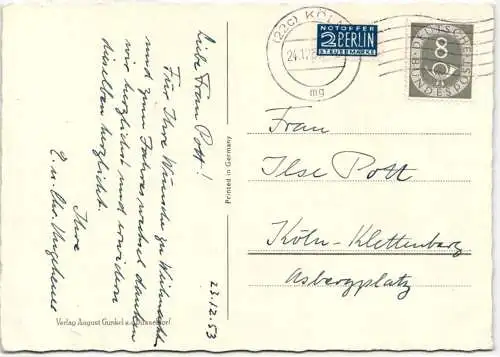 Liebe Frau Pott!
Für Ihre Wünsche zu Weihnachten
und zum Jahreswechsel danken
wir herzlichst und erwidern
dieselben herzlichst.
Ihre
23.12.53
Verlag August Gunkel Düsseldorf
Printed in Germany
(22c) KÖLN
24.1
mg
NOTOPFER
2 BERLIN
STEUERMARKE
8
DEUTSCHE BUNDESPOST
Frau
Ilse Pott
Köln-Klettenberg
Asbergplatz